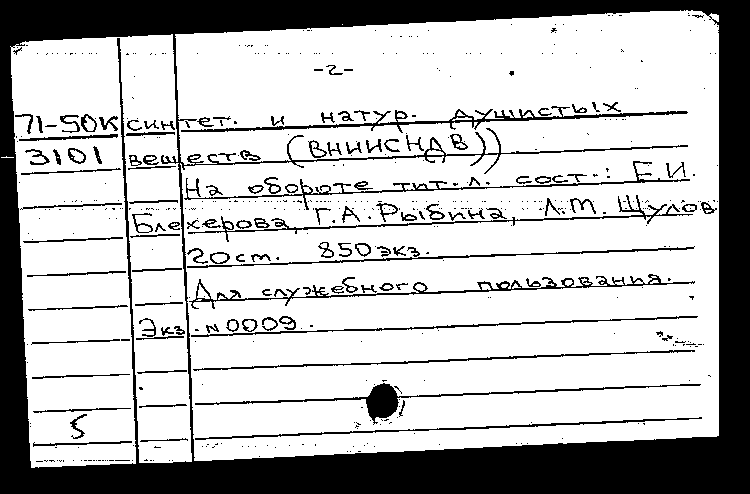 -2-
71-50К синтет. и натур. душистых
3101 веществ (ВНИИСНДВ))
На обороте тит.л. сост.: Е.И.
Блехерова, Г.А. Рыбина, Л.М. Шулов
20 ст. 850 экз.
Для служебного пользования.
Экз. N 0009.
5